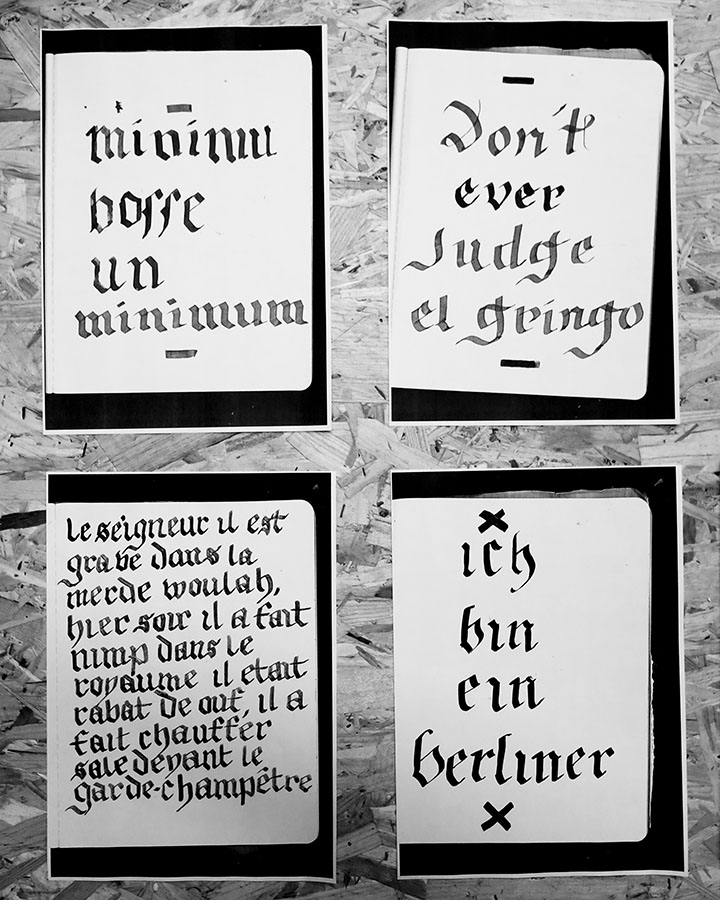 minimu
bosse
un
minimum
Don't
ever
Judge
el gringo
le seigneur il est
grave dans la
merde woulah,
hier soir il a fait
nimp dans le
royaume il etait
rabat de ouf, il a
fait chauffer
sale devant le
garde-champêtre
ich
bin
ein
berliner